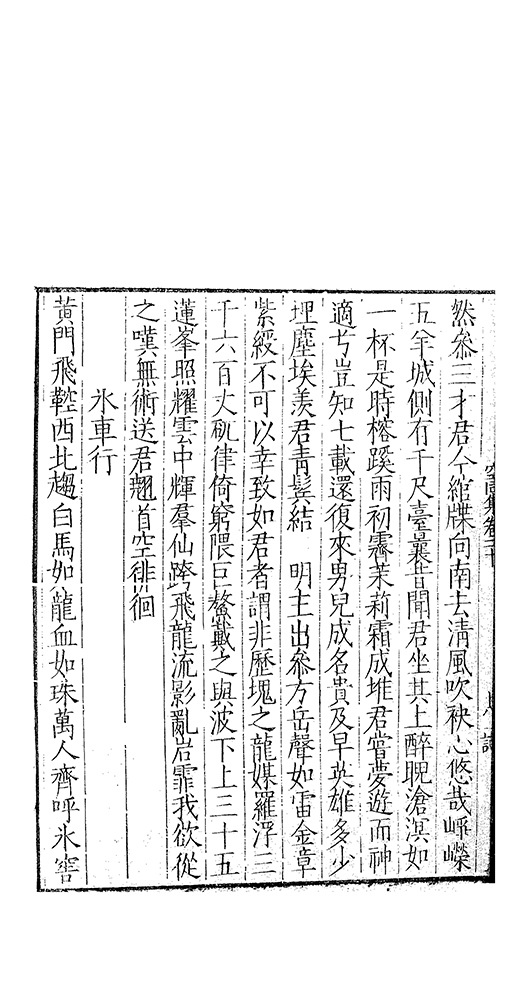 然參三才君今綰牒向南去清風吹袂心悠哉崢嶸
五羊城側有千尺臺曩昔聞君坐其上醉睨滄溟如
一杯是時榕蹊雨初霽茉莉霜成堆君嘗夢遊而神
適兮豈知七載還復來男兒成名貴及早英雄多少
埋塵埃羨君青鬂結 明主出參方岳聲如雷金章
紫綬不可以幸致如君者謂非歷塊之龍媒羅浮三
千六百丈矹硉倚窮隈巨鰲戴之與波下上三十五
蓮峯照耀雲中輝羣仙跨飛龍流影亂岩霏我欲從
之嘆無術送君翹首空徘徊
氷車行
黃門飛鞚西北趨白馬如龍血如珠萬人齊呼氷窖